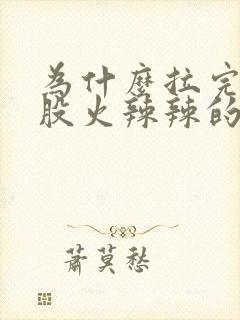 为什麼拉完
股火辣辣的
蕭莫愁